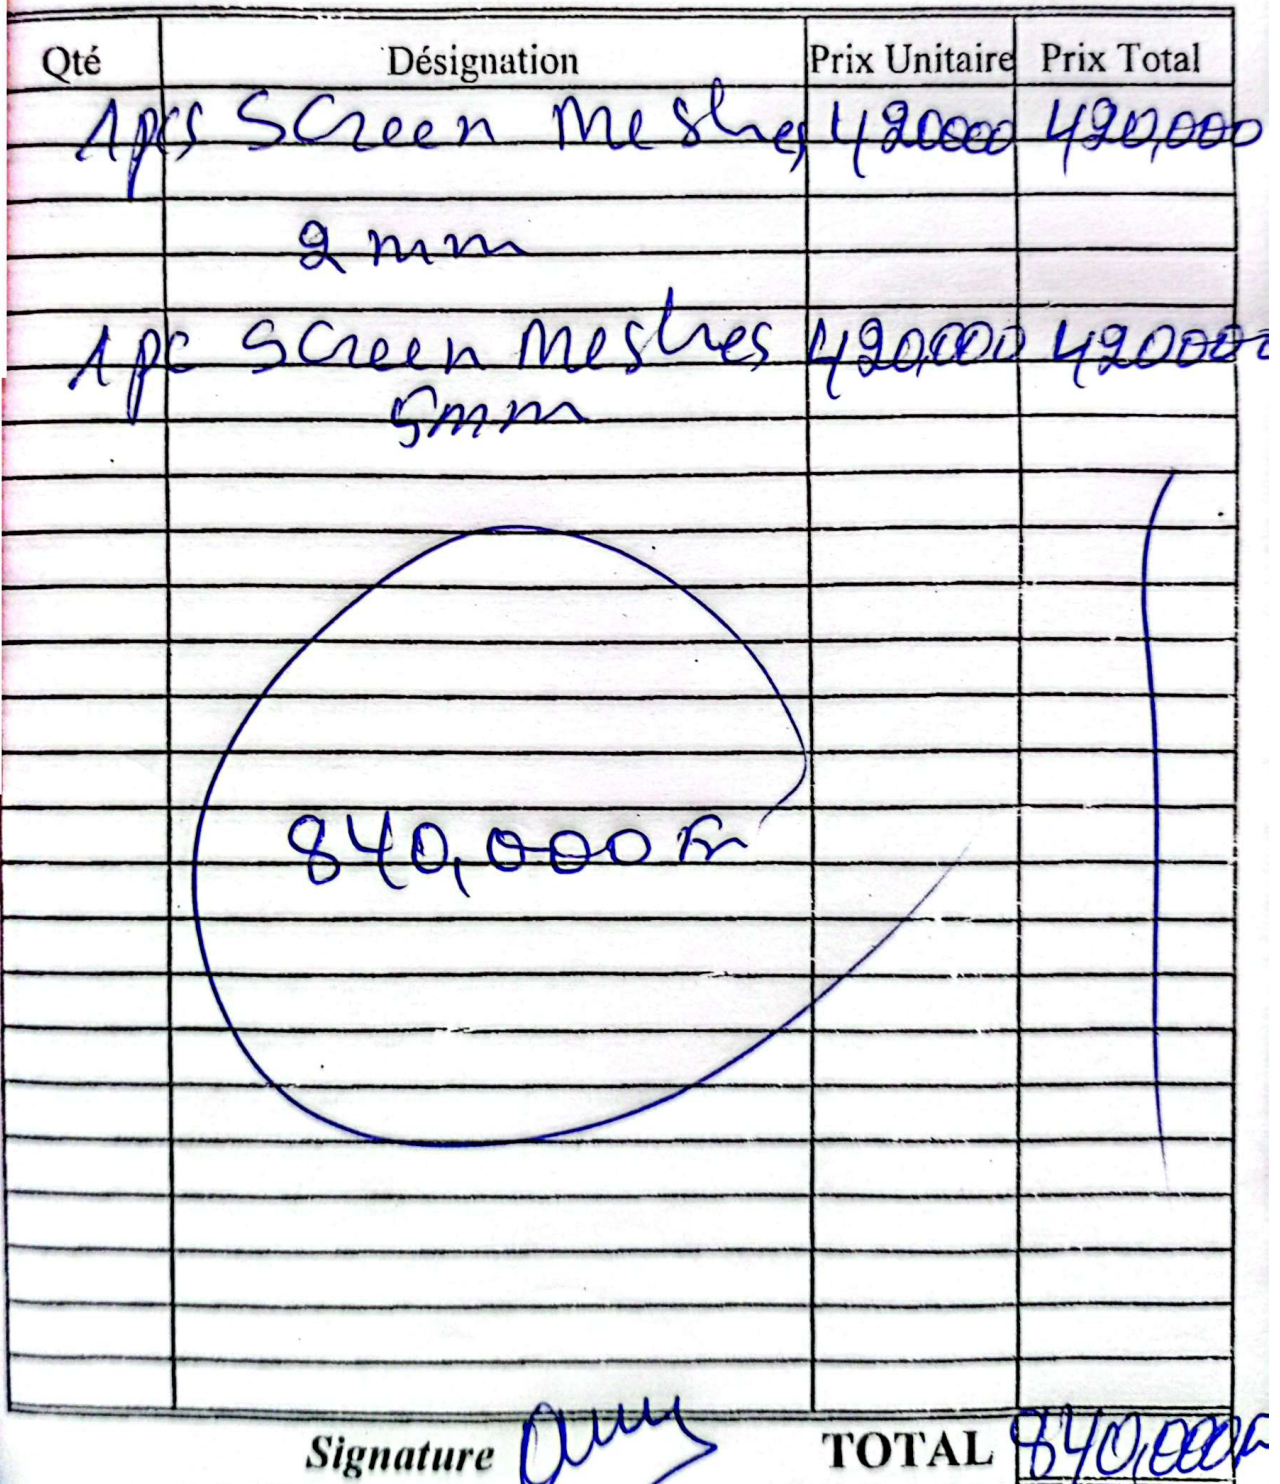 Qté Désignation Prix Unitaire Prix Total
1pcs Screen Meshes 420000 420,000
2mm
1pc Screen Meshes 420,000 420000
5mm
840,000 Fr
Signature TOTAL 840,000F